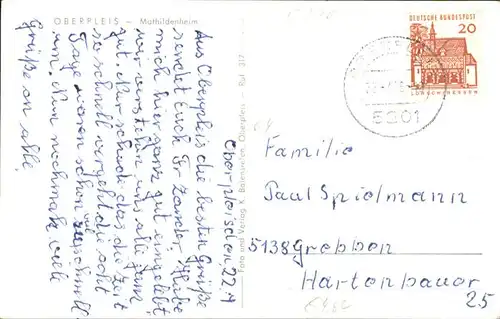 OBERPLEIS – Mathildenheim
Oberpleis den 22.4
Aus Oberpleis die besten Grüße
sendet Euch Fr Zander. Habe
mich hier ganz gut eingelebt
wir verstehen uns alle ganz
gut. Nur schade das die Zeit
so schnell vergeht die acht
Tage waren schon viel zu schnell
um. Nun nochmals viele
Grüße an alle
Foto und Verlag K. Oberpleis – Ruf 317
DEUTSCHE BUNDESPOST
20
LORSCH/HESSEN
5301
Familie
Paul Spielmann
5138 Grebben
Hartenbauer
25